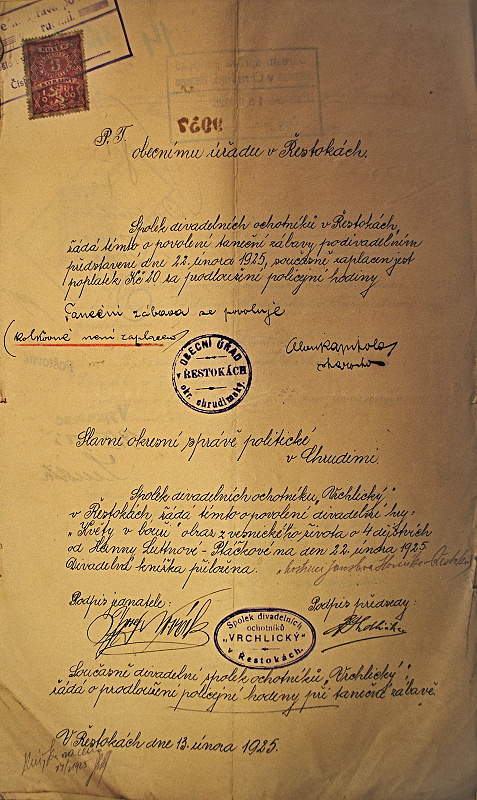 P. T.
obecnímu úřadu v Řestokách.
Spolek divadelních ochotníků v Řestokách,
žádá tímto o povolení taneční zábavy po divadelním
představení dne 22. února 1925, současně zaplacen jest
poplatek Kč 20 za prodloužení policejní hodiny
Taneční zábava se povoluje
(kolkovné není zaplaceno)
OBECNÍ ÚŘAD
v ŘESTOKÁCH
okr. chrudimský.
starosta
Slavné okresní správě politické
v Chrudimi.
Spolek divadelních ochotníků „Vrchlický"
v Řestokách žádá tímto o povolení divadelní hry:
„Květy v bouři" obraz z vesnického života o 4 dějstvích
od Hanny Lutnové - Ptáčkové na den 22. února 1925.
Divadelní knížka přiložena.
Podpis jednatele:
Podpis předsedy:
Spolek divadelních
ochotníků
"VRCHLICKÝ"
v Řestokách.
Současně divadelní spolek ochotníků „Vrchlický"
žádá o prodloužení policejní hodiny při taneční zábavě.
V Řestokách dne 13. února 1925.